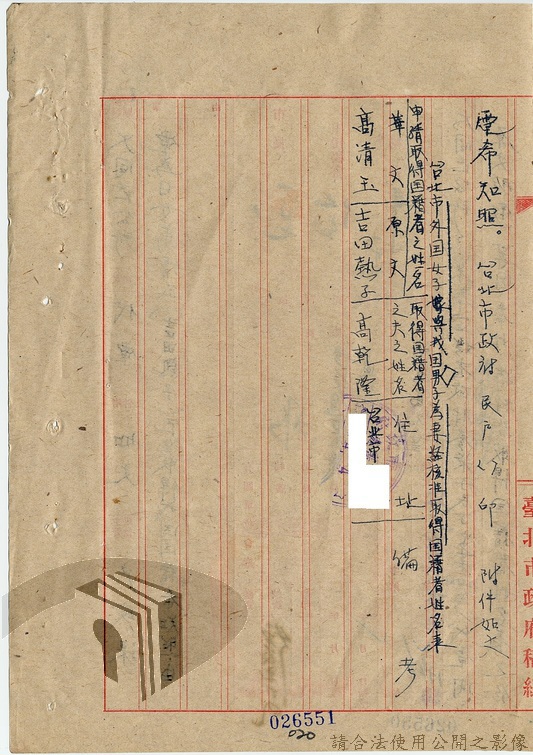 煙希知照。台北市政府民戶 印 附件如文
台北市外国女子嫁與我国男子為妻經核准取得国籍者姓名表
申請取得国籍者之姓名
華文
原文
取得国籍者之夫之姓名
住址
備考
高清玉
吉田熱子
高乾隆
台北市
臺北市政府稿紙
026551
020
請合法使用公開之影像